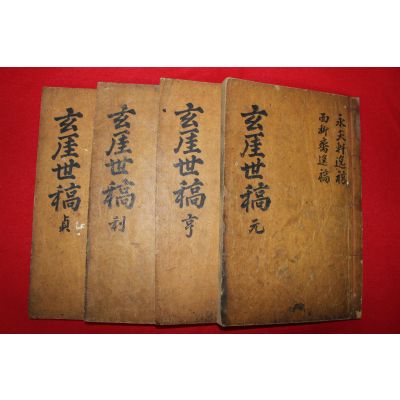 玄厓世稿 元
永天軒逸稿
西柳齋逸稿
玄厓世稿 亨
玄厓世稿 利
玄厓世稿 貞